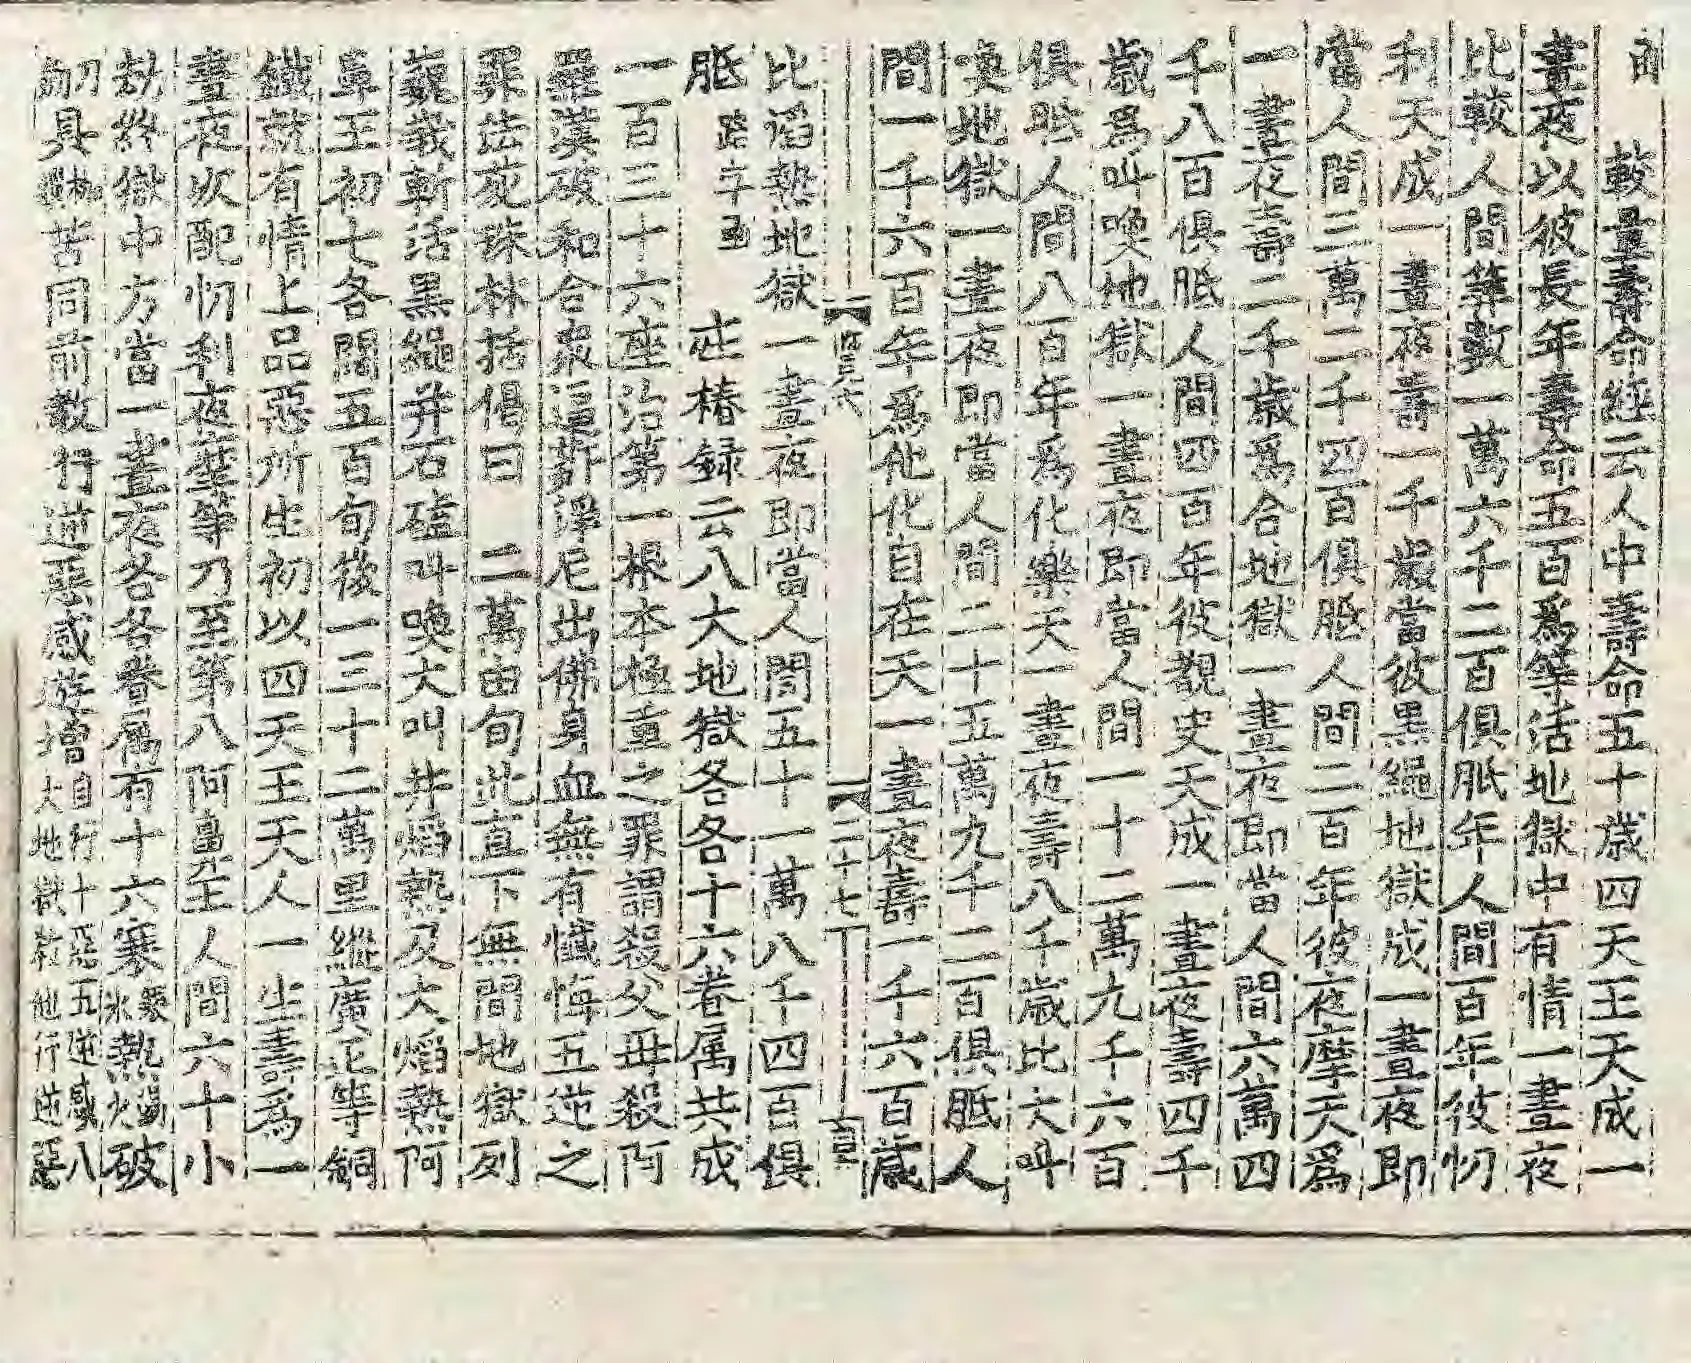 較量壽命經云人中壽命五十歲四天王天成一
晝夜以彼長年壽命五百爲等活地獄中有情一晝夜
比較人間筭數一萬六千二百俱胝年人間百年彼忉
利天成一晝夜壽一千歲當彼黑繩地獄成一晝夜即
當人間三萬二千四百俱胝人間二百年彼夜摩天爲
一晝夜壽二千歲爲合地獄一晝夜即當人間六萬四
千八百俱胝人間四百年彼覩史天成一晝夜壽四千
歲爲叫喚地獄一晝夜即當人間一十二萬九千六百
俱胝人間八百年爲化樂天一晝夜壽八千歲比大叫
喚地獄一晝夜即當人間二十五萬九千二百俱胝人
間一千六百年爲他化自在天一晝夜壽一千六百歲
二十七
比焰熱地獄一晝夜即當人間五十一萬八千四百俱
胝 椿録云八大地獄各各十六眷属共成
一百三十六座治第一根本極重之罪謂殺父母殺阿
羅漢破和合衆這辭浮尼出佛身血無有懺悔五逆之
罪 珠林括偈曰 二萬由旬此直下無間地獄列
巍峩斬活黑繩并石磕叫喚大叫并焰熱及大焰熱阿
鼻王初七各闊五百旬後一三十二萬里縱廣正等銅
鐵就有情上品惡所生初以四天王天人一生壽爲一
晝夜次配忉利夜摩等乃至第八阿鼻王人間六十小
劫終獄中方當一晝夜各各眷属有十六寒氷熱火破
具 苦同前數行逆惡感
自行十惡五逆感八
大地獄教他行逆惡